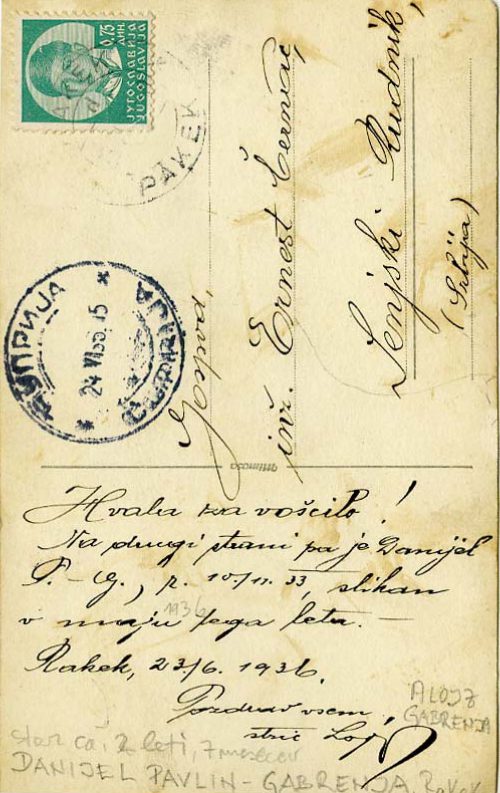 0,75
ДИН.
ЈУГОСЛАВИЈА
JUGOSLAVIJA
RAKEK
ЋУПРИЈА
24 VI 36. 15
ĆUPRIJA
Gospod,
inž. Ernest Černač,
Senjski Rudnik,
(Srbija)
Hvala za voščilo!
Na drugi strani pa je Danijel
P. - G., r. 10/11. 33, slikan
v maju tega leta. -
1936
Rakek, 23/6. 1936.
Pozdrav vsem,
stric Lojz
ALOJZ
GABRENJA
star ca. 2 leti, 7 mesecev
DANIJEL PAVLIN - GABRENJA, Rakek